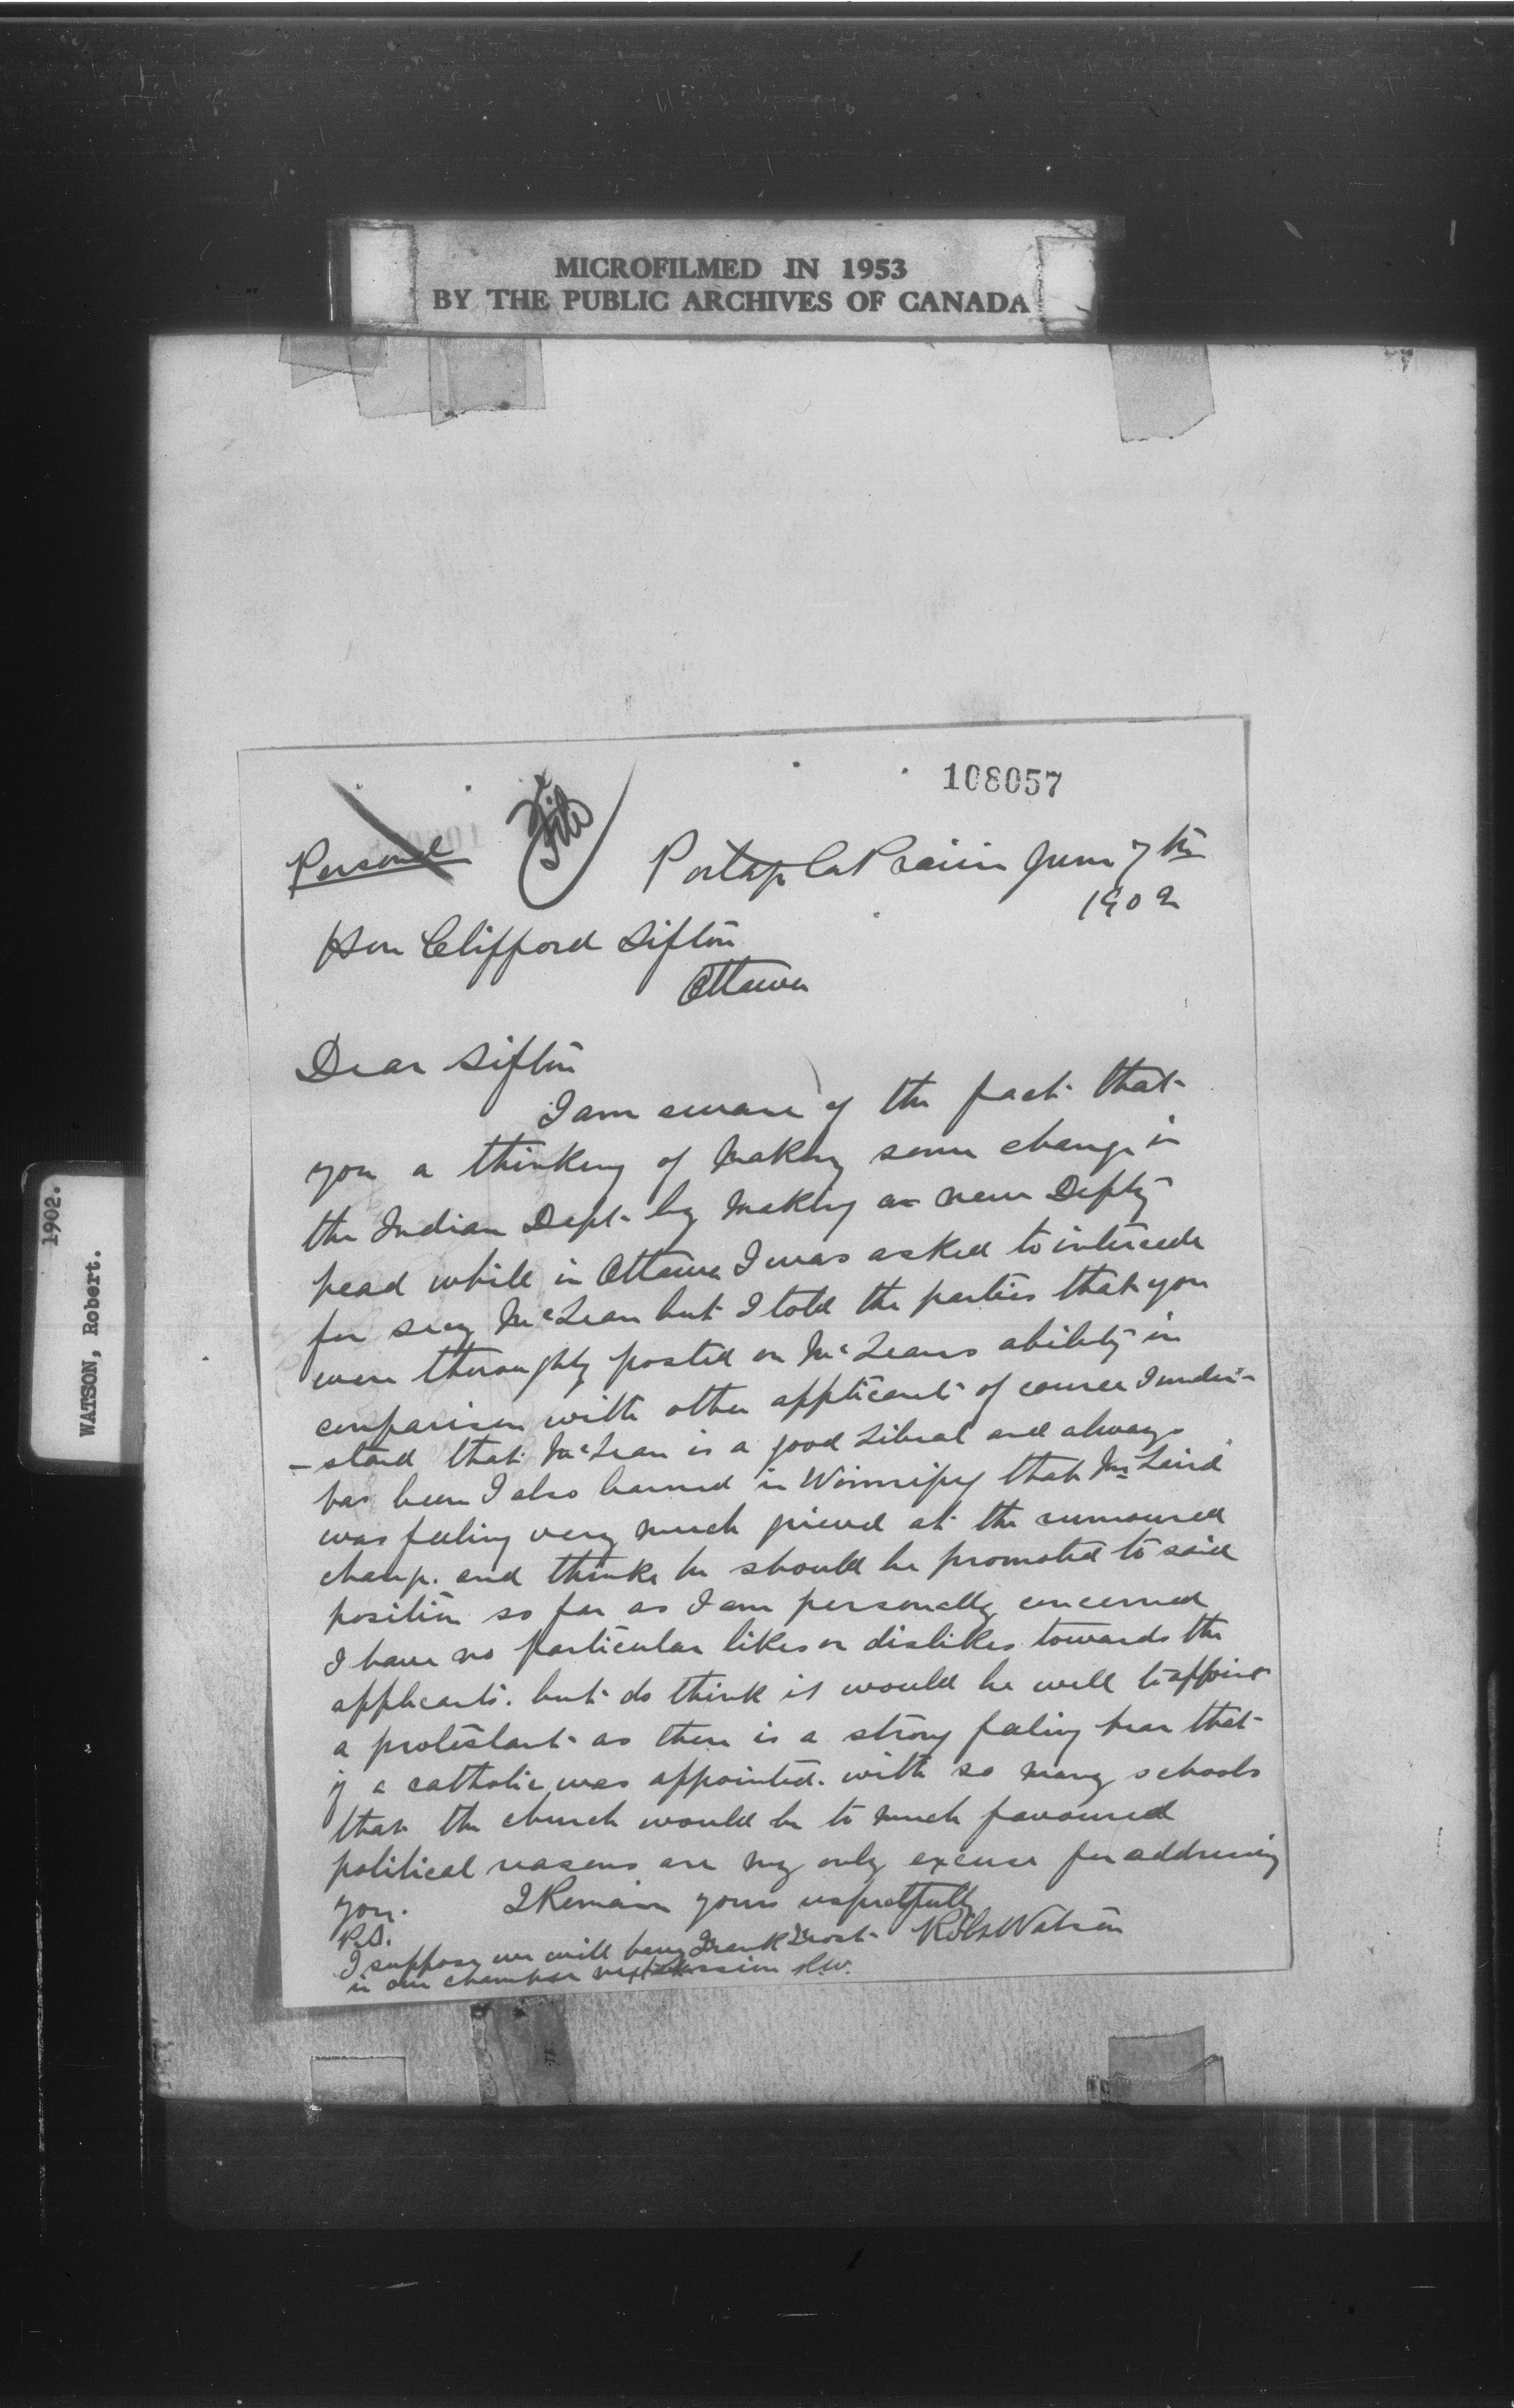 MICROFILMED IN 1953
BY THE PUBLIC ARCHIVES OF CANADA
1902.
WATSON, Robert.
108057
Personal
File
Portage La Prairie June 7th
1902
Hon Clifford Sifton
Ottawa
Dear Sifton
I am aware of the fact that
you a thinking of making some change in
the Indian Dept by making a new Depty
head while in Ottawa I was asked to intercede
for secy McLean but I told the parties that you
were thoroughly posted on McLeans ability in
comparison with other applicants of course I under-
-stand that McLean is a good Liberal and always
has been I also learned in Winnipeg that Mr Laird
was feeling very much grieved at the rumoured
change. and thinks he should be promoted to said
position so far as I am personally concerned
I have no particular likes or dislikes towards the
applicants. but do think it would be well to appoint
a protestant as there is a strong feeling hear that
if a catholic was appointed. with so many schools
that the church would be to much favoured
political reasons are my only excuse for addressing
you. I Remain yours respectfully
Robt Watson
P.S.
I suppose we will have Frank Frost
in our chamber next session R.W.